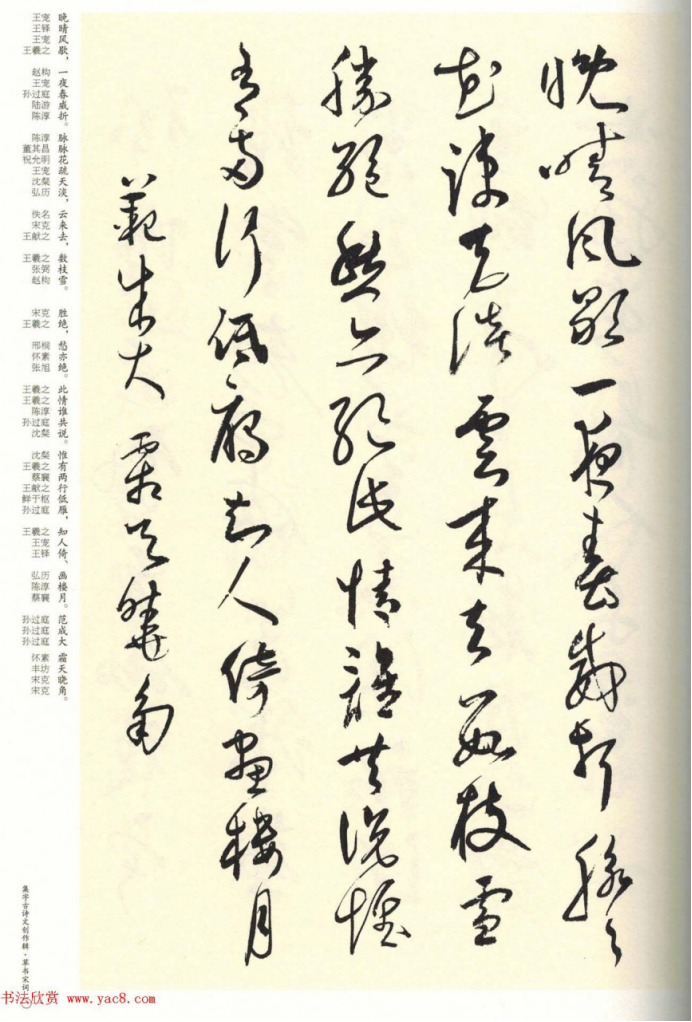 晚晴风歇一夜春威折脉々
花疏天淡云来去数枝雪
胜绝愁亦绝此情谁共说惟
有两行低雁知人倚画楼月
范成大 霜天晓角
晚 王宠
晴 王铎
风 王宠
歇， 王羲之
一 赵构
夜 王宠
春 孙过庭
威 陆游
折。 陈淳
脉 陈淳
脉 董其昌
花 祝允明
疏 王宠
天 沈粲
淡， 弘历
云 佚名
来 宋克
去， 王献之
数 王羲之
枝 张弼
雪。 赵构
胜 宋克
绝， 王羲之
愁 邢桐
亦 怀素
绝。 张旭
此 王羲之
情 王羲之
谁 陈淳
共 孙过庭
说。 沈粲
惟 沈粲
有 王羲之
两 蔡襄
行 王献之
低 鲜于枢
雁， 孙过庭
知 王羲之
人 王宠
倚、 王铎
画 弘历
楼 陈淳
月。 蔡襄
范 孙过庭
成 孙过庭
大 孙过庭
霜 怀素
天 丰坊
晓 宋克
角。 宋克
集字古诗文创作辑·草书宋词
书法欣赏 www.yac8.com